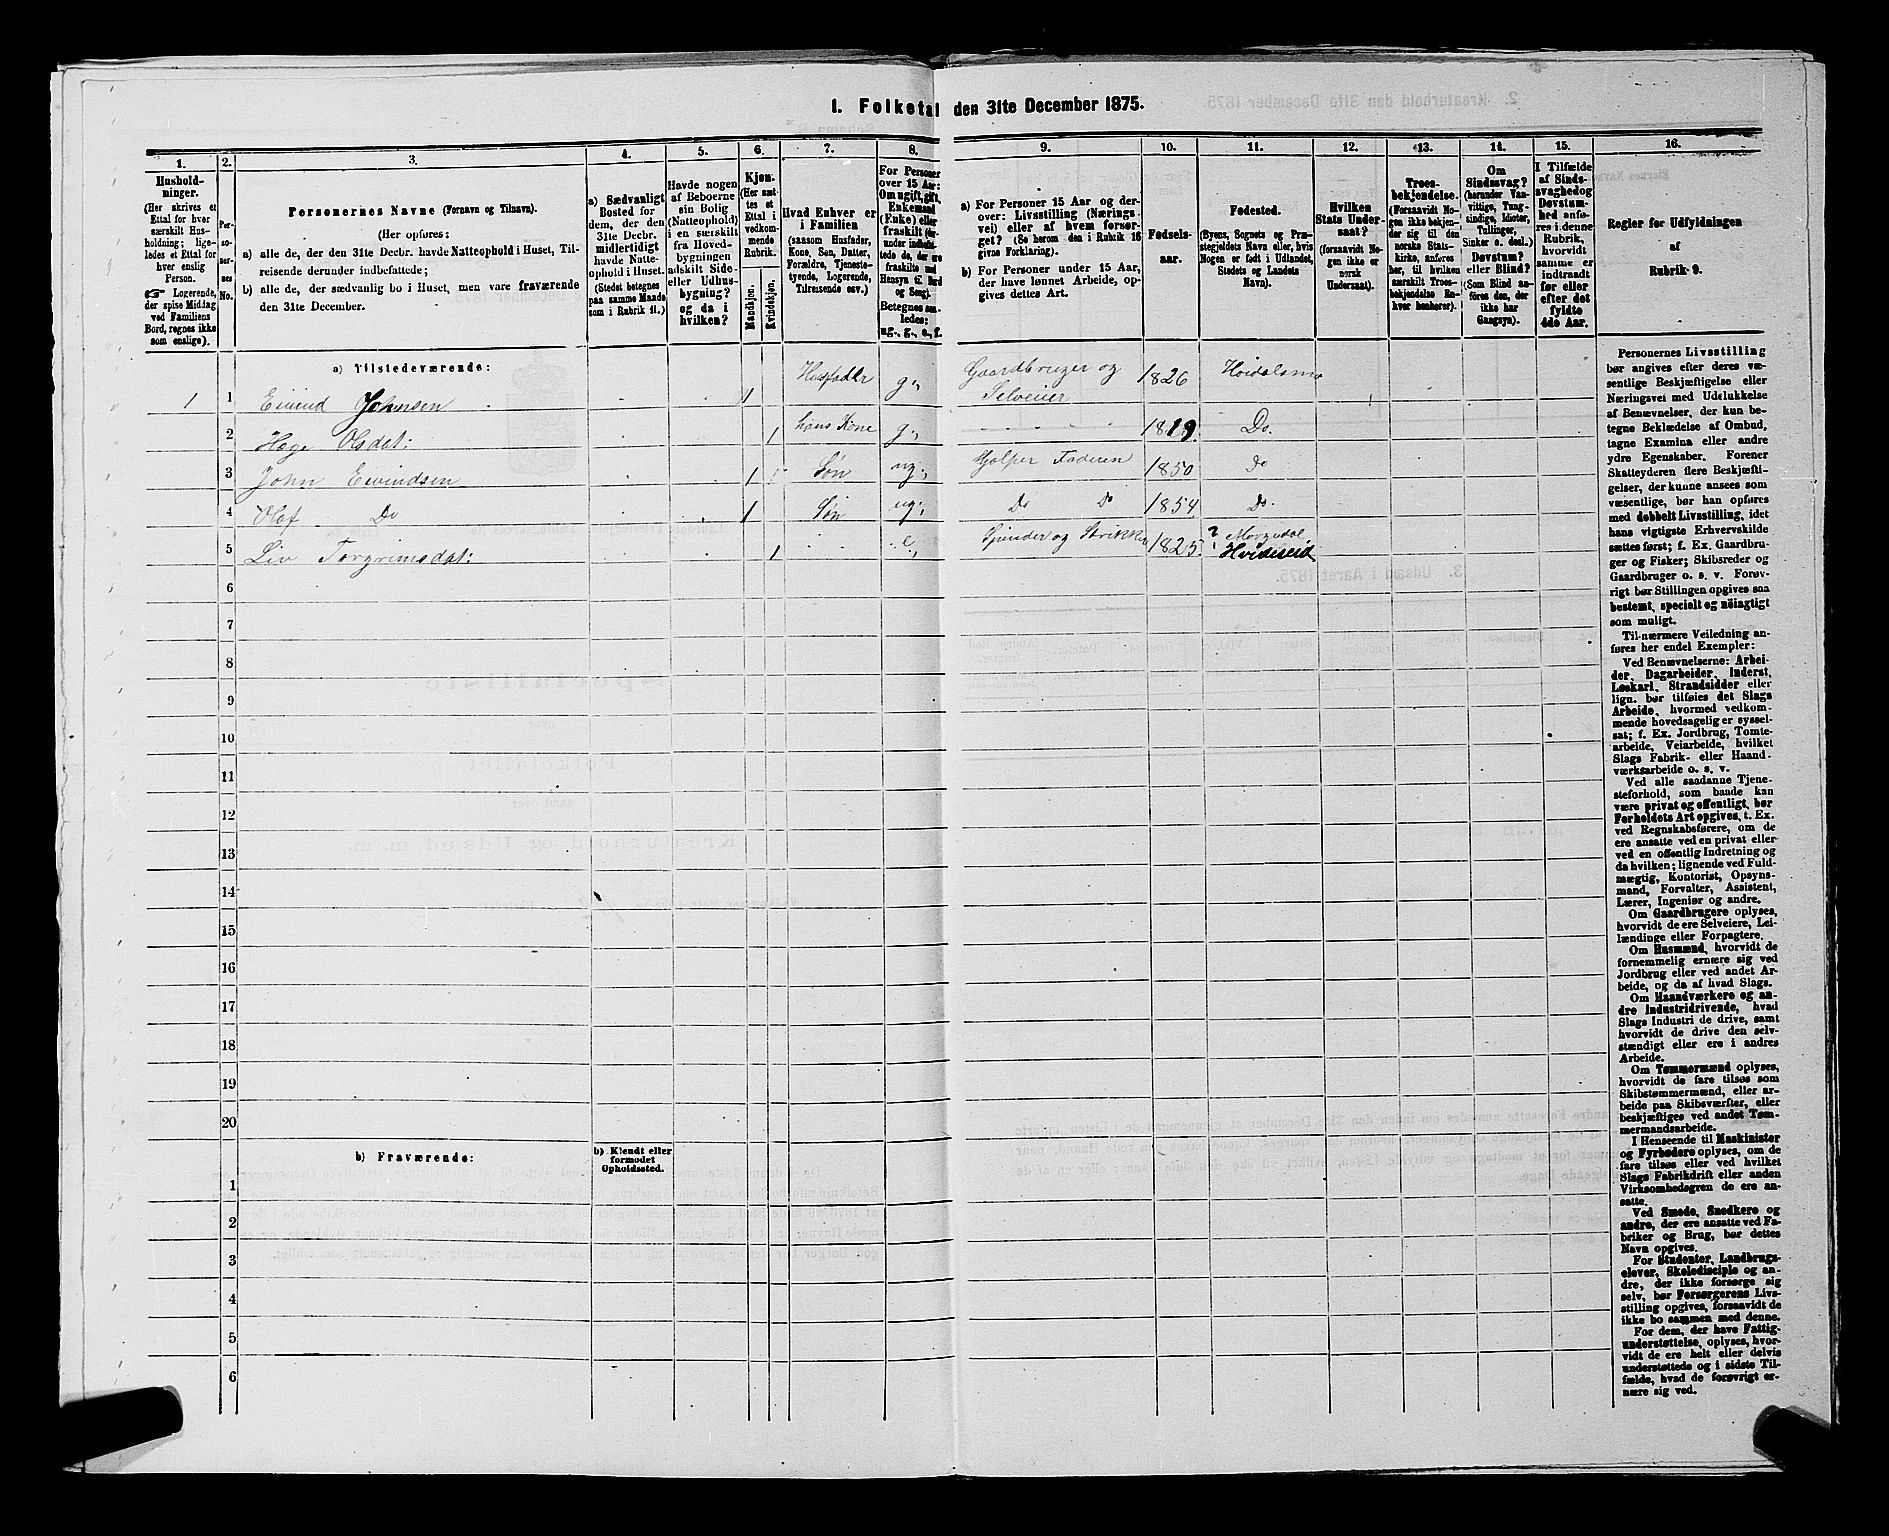 1. Folketal den 31te December 1875.
1. 2. 3. 4. 5. 6. 7. 8. 9. 10. 11. 12. 13. 14. 15. 16.
Hushold-
ninger.
(Her skrives et
Ettal for hver
særskilt Hus-
holdning; lige-
ledes et Ettal for
hver enslig
Person.
☞ Logerende,
der spise Middag
ved Familiens
Bord, regnes ikke
som enslige).
Per-
so-
ner-
nes
No.
Personernes Navne (Fornavn og Tilnavn).
(Her opføres:
a) alle de, der den 31te Decbr. havde Natteophold i Huset, Til-
reisende derunder indbefattede;
b) alle de, der sædvanlig bo i Huset, men vare fraværende
den 31te December.
a) Sædvanligt
Bosted for
dem, der den
31te Decbr.
midlertidigt
havde Natte-
ophold i Huset.
(Stedet betegnes
paa samme Maade
som i Rubrik 11.)
Havde nogen
af Beboerne
sin Bolig
(Natteophold)
i en særskilt
fra Hoved-
bygningen
adskilt Side-
eller Udhus-
bygning?
og da i
hvilken?
Kjøn.
(Her sæt-
tes et
Ettal i
vedkom-
mende
Rubrik.
Mandskjøn.
Kvindekjøn.
Hvad Enhver er
i Familien
(saasom Husfader,
Kone, Søn, Datter,
Forældre, Tjeneste-
tyende, Logerende,
Tilreisende osv.)
For Personer
over 15 Aar:
Om ugift, gift,
Enkemand
(Enke) eller
fraskilt (her-
under indbefat-
tede de, der ere
fraskilte med
Hensyn til Bord
og Seng).
Betegnes saa-
ledes:
ug., g., e., f.
a) For Personer 15 Aar og der-
over: Livsstilling (Nærings-
vei) eller af hvem forsør-
get? (Se herom den i Rubrik 16
givne Forklaring).
b) For Personer under 15 Aar,
der have lønnet Arbeide, op-
gives dettes Art.
Fødsels-
aar.
Fødested.
(Byens, Sognets og Præ-
stegjeldets Navn eller, hvis
Nogen er født i Udlandet,
Stedets og Landets
Navn).
Hvilken
Stats Under-
saat?
(forsaavidt No-
gen ikke er
norsk
Undersaat).
Troes-
bekjendelse.
(Forsaavidt No-
gen ikke bekjen-
der sig til den
norske Stats-
kirke, anføres
her, til hvilken
særskilt Troes-
bekjendelse En-
hver henhører).
Om
Sindssvag?
(herunder Van-
vittige, Tung-
sindige, Idioter,
Tullinger,
Sinker o. desl.)
Døvstum?
eller Blind?
(Som Blind an-
føres den, der
ikke har
Gangsyn).
I Tilfælde
af Sinds-
svaghed og
Døvstum-
hed anfø-
res i denne
Rubrik,
hvorvidt
samme er
indtraadt
før eller
efter det
fyldte
4de Aar.
Regler for Udfyldningen
af
Rubrik 9.
a) Tilstedeværende:
1 1 Eivind Johnsen 1 Husfader g. Gaardbruger og Selveier 1826 Hoidalsmo
2 Hæge Olsdat: 1 hans Kone g. 1819. Do.
3 John Eivindsen 1 Søn ug. Hjælper Faderen 1850 Do
4 Olaf Do 1 Søn ug. Do Do 1854 Do.
5 Liv Torgrimsdat: 1 e. Spinder og Strikker 1825. ? Morgedal, Hvideseid
6
7
8
9
10
11
12
13
14
15
16
17
18
19
20
b) Fraværende:
b) Kjendt eller
formodet
Opholdssted.
1
2
3
4
5
6
Personernes Livsstilling
bør angives efter deres væ-
sentlige Beskjæftigelse eller
Næringsvei med Udelukkelse
af Benævnelser, der kun be-
tegne Beklædelse af Ombud,
tagne Examina eller andre
ydre Egenskaber. Forener
Skatteyderen flere Beskjæfti-
gelser, der kunne ansees som
væsentlige, bør han opføres
med dobbelt Livsstilling, idet
hans vigtigste Erhvervskilde
sættes først; f. Ex. Gaardbru-
ger og Fisker; Skibsreder og
Gaardbruger o. s. v. Forøv-
rigt bør Stillingen opgives saa
bestemt, specielt og nøiagtigt
som muligt.
Til nærmere Veiledning an-
føres her endel Exempler:
Ved Benævnelserne: Arbei-
der, Dagarbeider, Inderst,
Løskarl, Strandsidder eller
lign. bør tilføies det Slags
Arbeide, hvormed vedkom-
mende hovedsagelig er syssel-
sat; f. Ex. Jordbrug, Tomte-
arbeide, Veiarbeide, hvilket
Slags Fabrik- eller Haand-
værksarbeide o. s. v.
Ved alle saadanne Tjene-
steforhold, som baade kan
være privat og offentligt, bør
Forholdets Art opgives, t. Ex.
ved Regnskabsførere, om de
ere ansatte ved en privat eller
ved en offentlig Indretning og
da hvilken; lignende ved Fuld-
mægtig, Kontorist, Opsyns-
mand, Forvalter, Assistent,
Lærer, Ingeniør og andre.
Om Gaardbrugere oplyses,
hvorvidt de ere Selveiere, Lei-
lændinge eller Forpagtere.
Om Husmænd, hvorvidt de
fornemmelig ernære sig ved
Jordbrug eller ved andet Ar-
beide, og da af hvad Slags.
Om Haandværkere og an-
dre Industridrivende, hvad
Slags Industri de drive, samt
hvorvidt de drive den selv-
stændigt eller ere i andres
Arbeide.
Om Tømmermænd oplyses,
hvorvidt de fare tilsøs som
Skibstømmermænd, eller ar-
beide paa Skibsværfter, eller
beskjæftiges ved andet Tøm-
mermandsarbeide.
I Henseende til Maskinister
og Fyrbødere oplyses, om de
fare tilsøs eller ved hvilket
Slags Fabrikdrift eller anden
Virksomhedsgren de ere an-
satte.
Ved Smede, Snedkere og
andre, der ere ansatte ved Fa-
briker og Brug, bør dettes
Navn opgives.
For Studenter, Landbrugs-
elever, Skoledisciple og an-
dre, der ikke forsørge sig
selv, bør Forsørgerens Livs-
stilling opgives, forsaavidt de
ikke bo sammen med denne.
For dem, der have Fattig-
understøttelse, oplyses, hvor-
vidt de ere helt eller delvis
understøttede og i sidste Til-
fælde, hvad de forøvrigt er-
nære sig ved.